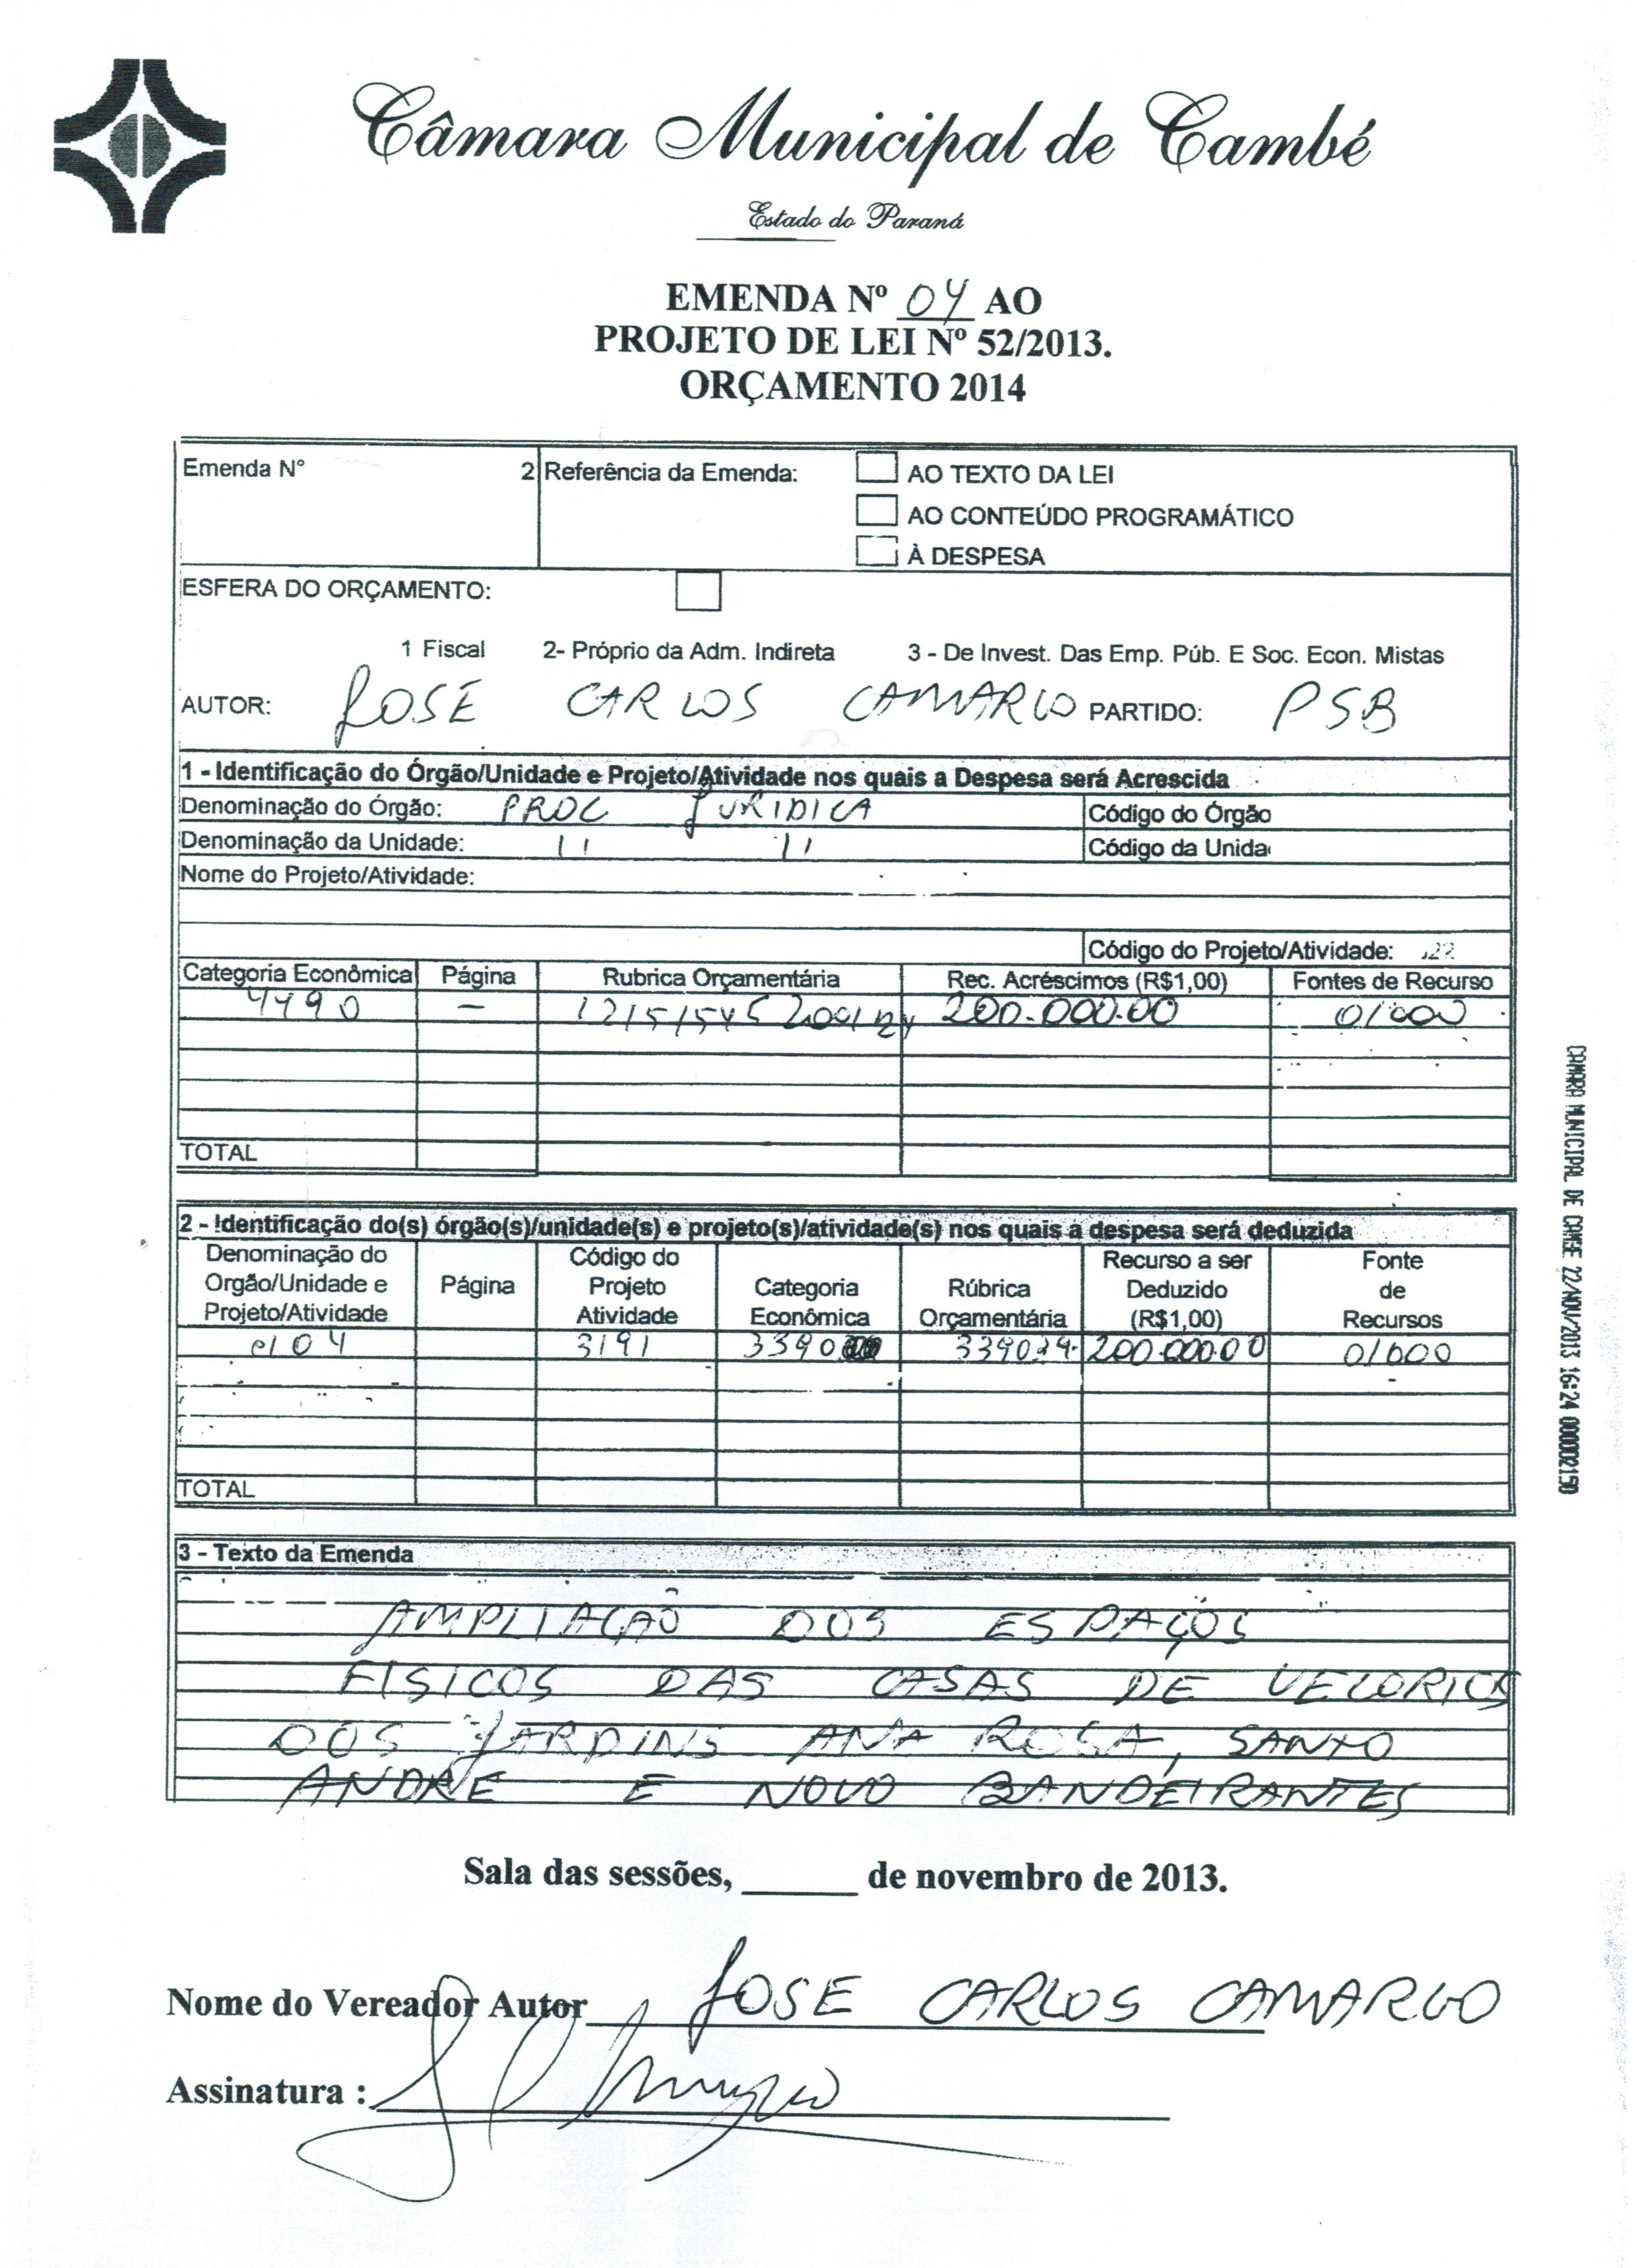 Câmara Municipal de Cambé
Estado do Paraná
EMENDA Nº 04 AO
PROJETO DE LEI Nº 52/2013.
ORÇAMENTO 2014
Emenda N° 2 Referência da Emenda: AO TEXTO DA LEI
AO CONTEÚDO PROGRAMÁTICO
À DESPESA
ESFERA DO ORÇAMENTO:
1 Fiscal 2- Próprio da Adm. Indireta 3 - De Invest. Das Emp. Púb. E Soc. Econ. Mistas
AUTOR: JOSE CARLOS CAMARGO PARTIDO: PSB
1 - Identificação do Órgão/Unidade e Projeto/Atividade nos quais a Despesa será Acrescida
Denominação do Órgão: PROC JURIDICA Código do Órgão
Denominação da Unidade: 11 11 Código da Unida
Nome do Projeto/Atividade:
Código do Projeto/Atividade:
Categoria Econômica Página Rubrica Orçamentária Rec. Acréscimos (R$1,00) Fontes de Recurso
4490 — 200.000.00 01000
TOTAL
2 - Identificação do(s) órgão(s)/unidade(s) e projeto(s)/atividade(s) nos quais a despesa será deduzida
Denominação do Orgão/Unidade e Projeto/Atividade Página Código do Projeto Atividade Categoria Econômica Rúbrica Orçamentária Recurso a ser Deduzido (R$1,00) Fonte de Recursos
0104 3191 3390 200.000.00 01000
TOTAL
3 - Texto da Emenda
AMPLIAÇÃO DOS ESPAÇOS
FISICOS DAS CASAS DE VELORIOS
DOS JARDINS ANA ROSA, SANTO
ANDRE E NOVO BANDEIRANTES
Sala das sessões, ______ de novembro de 2013.
Nome do Vereador Autor JOSE CARLOS CAMARGO
Assinatura :
CAMARA MUNICIPAL DE CAMBE 22/NOV/2013 16:24 000002150